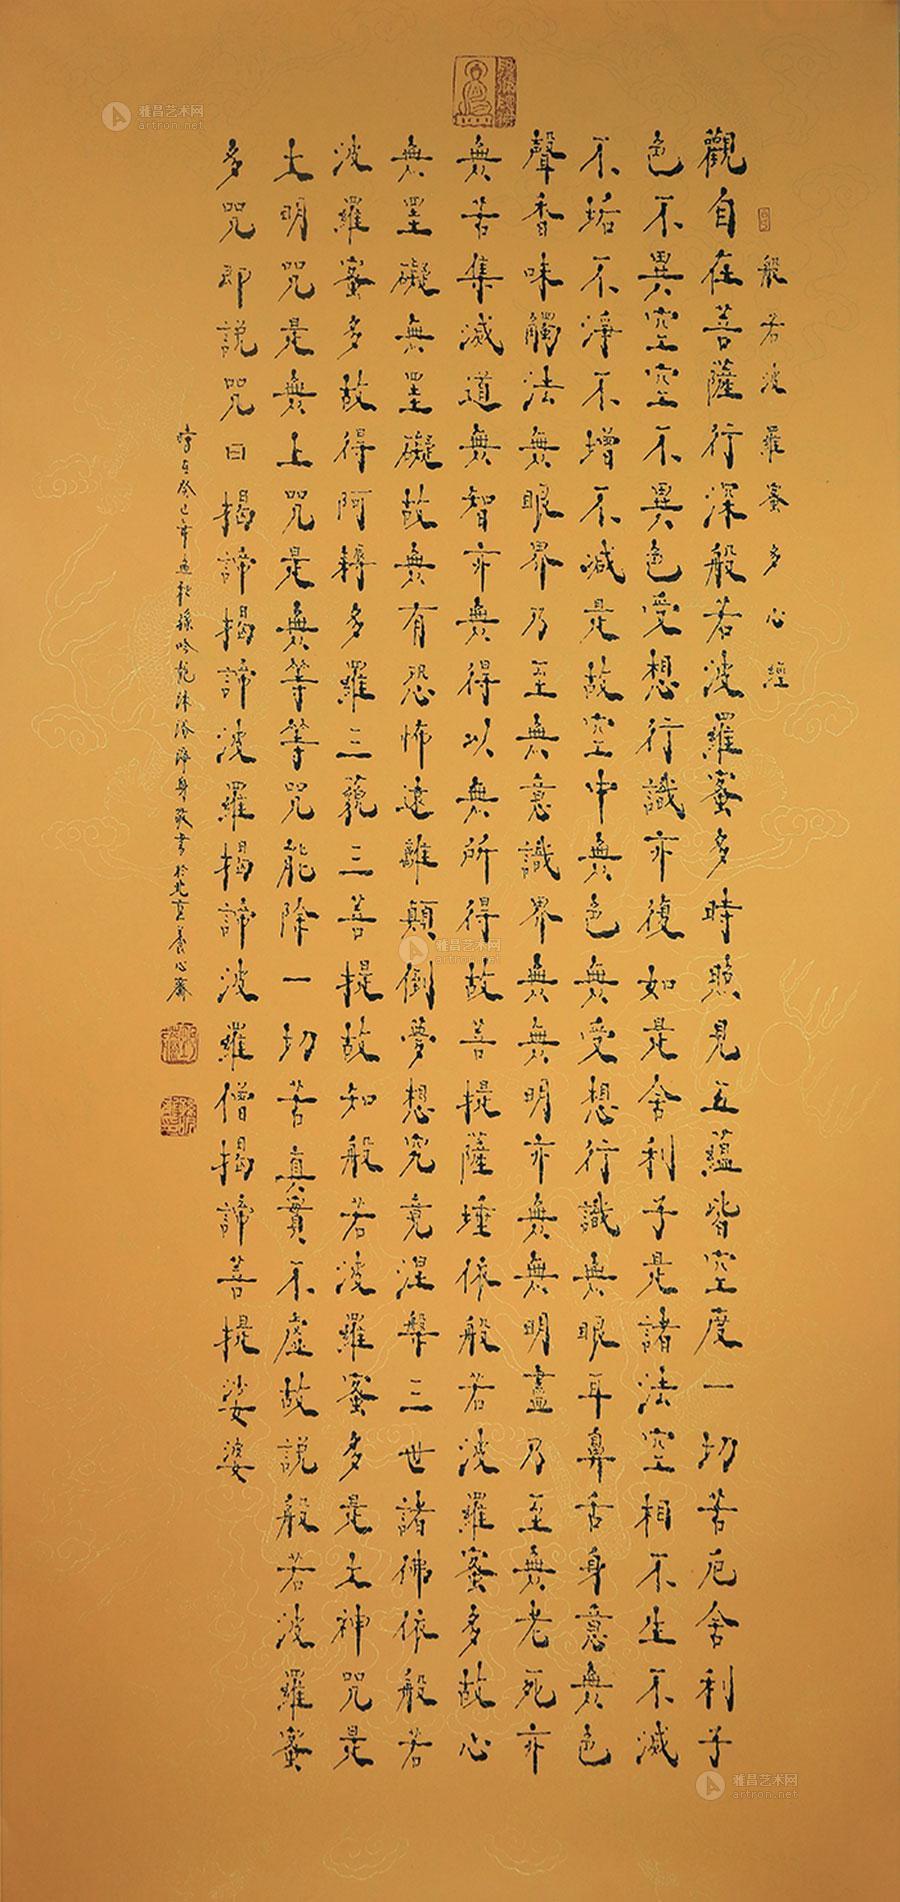 雅昌艺术网
artron.net
般若波羅蜜多心經
觀自在菩薩行深般若波羅蜜多時照見五蘊皆空度一切苦厄舍利子
色不異空空不異色受想行識亦復如是舍利子是諸法空相不生不滅
不垢不淨不增不減是故空中無色無受想行識無眼耳鼻舌身意無色
聲香味觸法無眼界乃至無意識界無無明亦無無明盡乃至無老死亦
無苦集滅道無智亦無得以無所得故菩提薩埵依般若波羅蜜多故心
無罣礙無罣礙故無有恐怖遠離顛倒夢想究竟涅槃三世諸佛依般若
波羅蜜多故得阿耨多羅三藐三菩提故知般若波羅蜜多是大神咒是
大明咒是無上咒是無等等咒能除一切苦真實不虛故說般若波羅蜜
多咒即說咒曰揭諦揭諦波羅揭諦波羅僧揭諦菩提娑婆
時在癸巳年孟秋孫吟沐浴淨身敬書於北京養心齋
雅昌艺术网
artron.net
雅昌艺术网
artron.net